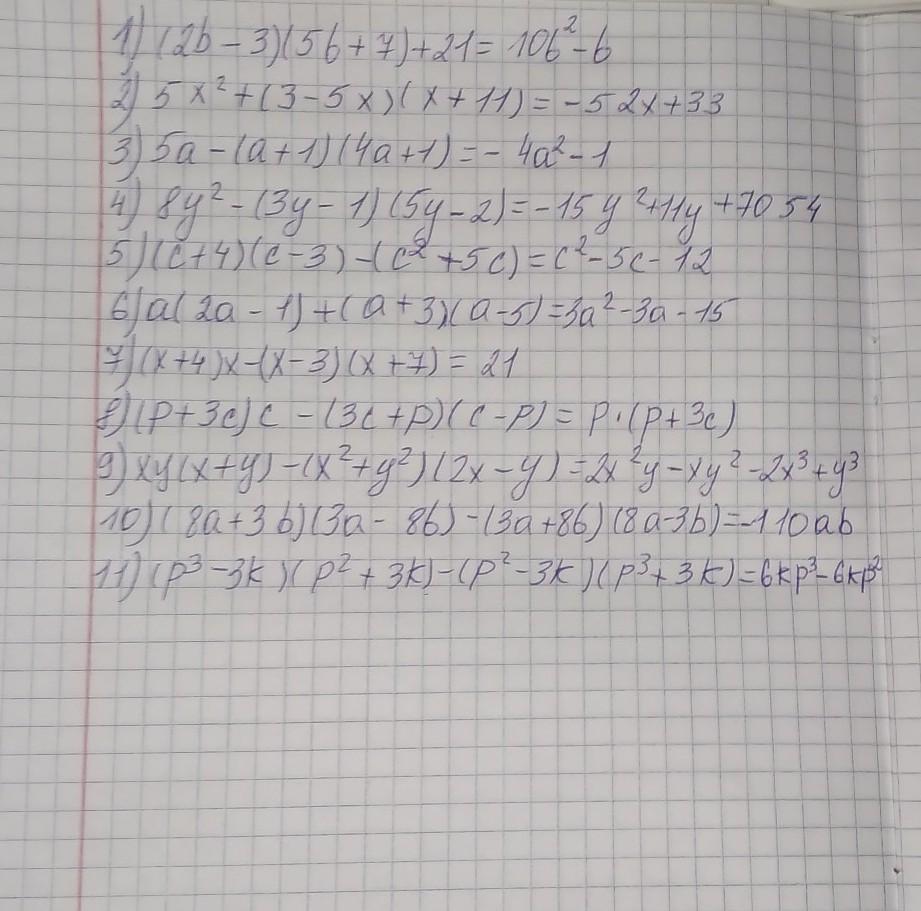 1) (2b - 3)(5b + 7) + 21 = 10b² - b
2) 5x² + (3 - 5x)(x + 11) = -52x + 33
3) 5a - (a + 1)(4a + 1) = -4a² - 1
4) 8y² - (3y - 1)(5y - 2) = -15y² + 11y + 7054
5) (c + 4)(c - 3) - (c² + 5c) = c² - 5c - 12
6) a(2a - 1) + (a + 3)(a - 5) = 3a² - 3a - 15
7) (x + 4)x - (x - 3)(x + 7) = 21
8) (p + 3c)c - (3c + p)(c - p) = p · (p + 3c)
9) xy(x + y) - (x² + y²)(2x - y) = 2x²y - xy² - 2x³ + y³
10) (8a + 3b)(3a - 8b) - (3a + 8b)(8a - 3b) = -110ab
11) (p³ - 3k)(p² + 3k) - (p² - 3k)(p³ + 3k) = 6kp³ - 6kp²